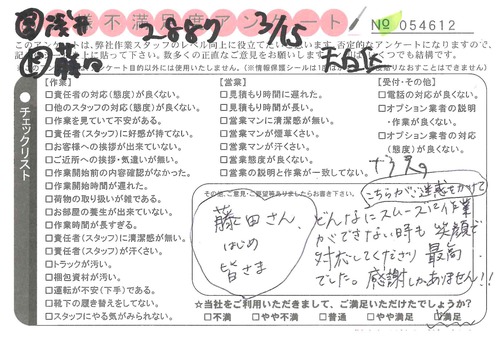 営 浅井 2887 3/15
お客様不満足度アンケート
№ 054612
このアンケートは、弊社作業スタッフのレベル向上に役立てたい
【作業】
□責任者の対応(態度)が良くない。
□他のスタッフの対応(態度)が良くない。
□作業を見ていて不安がある。
□責任者(スタッフ)に好感が持てない。
□お客様への挨拶が出来ていない。
□ご近所への挨拶・気遣いが無い。
□作業開始前の内容確認がなかった。
□作業開始時間が遅れた。
□荷物の取り扱いが雑である。
□お部屋の養生が出来ていない。
□作業時間が長すぎる。
□責任者(スタッフ)に清潔感が無い。
□責任者(スタッフ)が汗くさい。
□トラックが汚い。
□梱包資材が汚い。
□運転が不安(下手)である。
□靴下の履き替えをしてない。
□スタッフにやる気がみられない。
【営業】
□見積もり時間に遅れた。
□見積もり時間が長い。
□営業マンに清潔感が無い。
□営業マンが煙草くさい。
□営業マンが汗くさい。
□営業態度が良くない。
□営業の説明と作業が一致してない。
【受付・その他】
□電話の対応が良くない。
□オプション業者の説明
・作業が良くない。
□オプション業者の対応
(態度)が良くない。
チェックリスト
その他、ご意見・ご要望等ありましたらお書き下さい。
藤田さん、
はじめ
皆さま
こちらがご迷惑をかけて
どんなにスムーズに作業
ができない時も 笑顔で
対応してくださり 最高
でした。感謝しかありません!!
☆当社をご利用いただきまして、ご満足いただけたでしょうか?
□不満 □やや不満 □普通 □やや満足 □満足